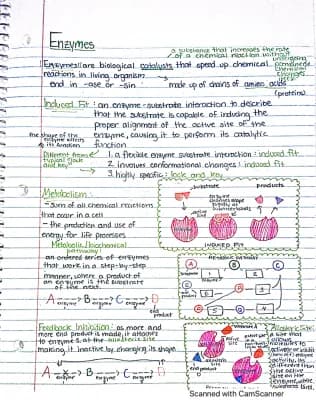 Enzymes
a substance that increases the rate
of a chemical reaction without
undergoing
permanent
chemical
changes
itself
Enzymes: are biological catalysts that speed up chemical
reactions in living organism
end in -ase or -sin
made up of chains of amino acids
(proteins)
Induced Fit: an enzyme-substrate interaction to describe
that the substrate is capable of inducing the
proper alignment of the active site of the
enzyme, causing it to perform its catalytic
function
the shape of the
enzyme affects
its function
Different from
typical "lock
and key"
1. a flexible enzyme substrate interaction: induced fit
2. involves conformational changes: induced fit
3. highly specific: lock and key
Metabolism:
- sum of all chemical reactions
that occur in a cell
- the production and use of
energy for life processes
substrate
products
enzyme
changes shape
slightly as
substrate binds
active
site
INDUCED FIT
Metabolic/biochemical
pathway:
an ordered series of enzymes
that work in a step-by-step
manner, where a product of
an enzyme is the substrate
of the next
A → B → C → D
enzyme
enzyme
enzyme
end
product
METABOLIC PATHWAY
A
B
C
Feedback Inhibition: as more and
more end product is made, it attaches
to enzyme 1, at the allosteric site
making it inactive by changing its shape
A → B → C → D
enzyme
enzyme
enzyme
end
product
active
site
allosteric
site
end
product
Allosteric Site:
a site that
allows
molecules to
activate or inhibit
enzyme
activity. It's
different than
the active
site on the
enzyme, where
substrate binds.
Scanned with CamScanner